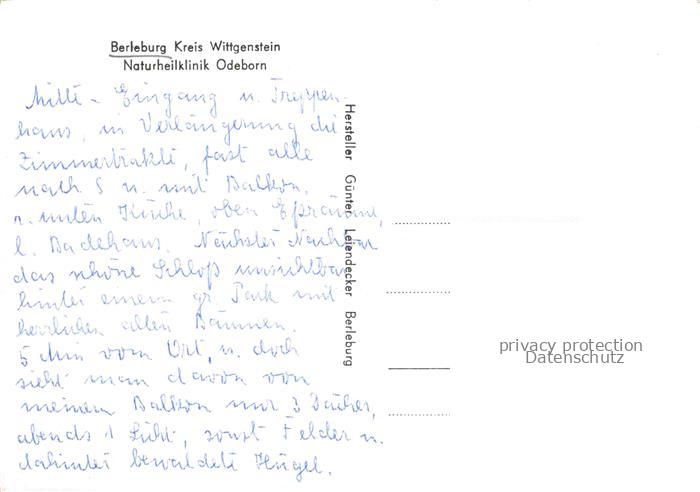 Berleburg Kreis Wittgenstein
Naturheilklinik Odeborn
Mitte - Eingang u. Treppen-
haus, in Verlängerung die
Zimmertrakte, fast alle
nach S u. mit Balkon,
r. unten Küche, oben Eßräume,
l. Badehaus. Nächster Nachbar
das schöne Schloß unsichtbar
hinter einem gr. Park mit
herrlichen alten Bäumen.
5 Min vom Ort, u. doch
sieht man davon von
meinem Balkon nur 3 Dächer,
abends 1 Licht, sonst Felder u.
dahinter bewaldete Hügel.
Hersteller Günter Leiendecker Berleburg
privacy protection
Datenschutz